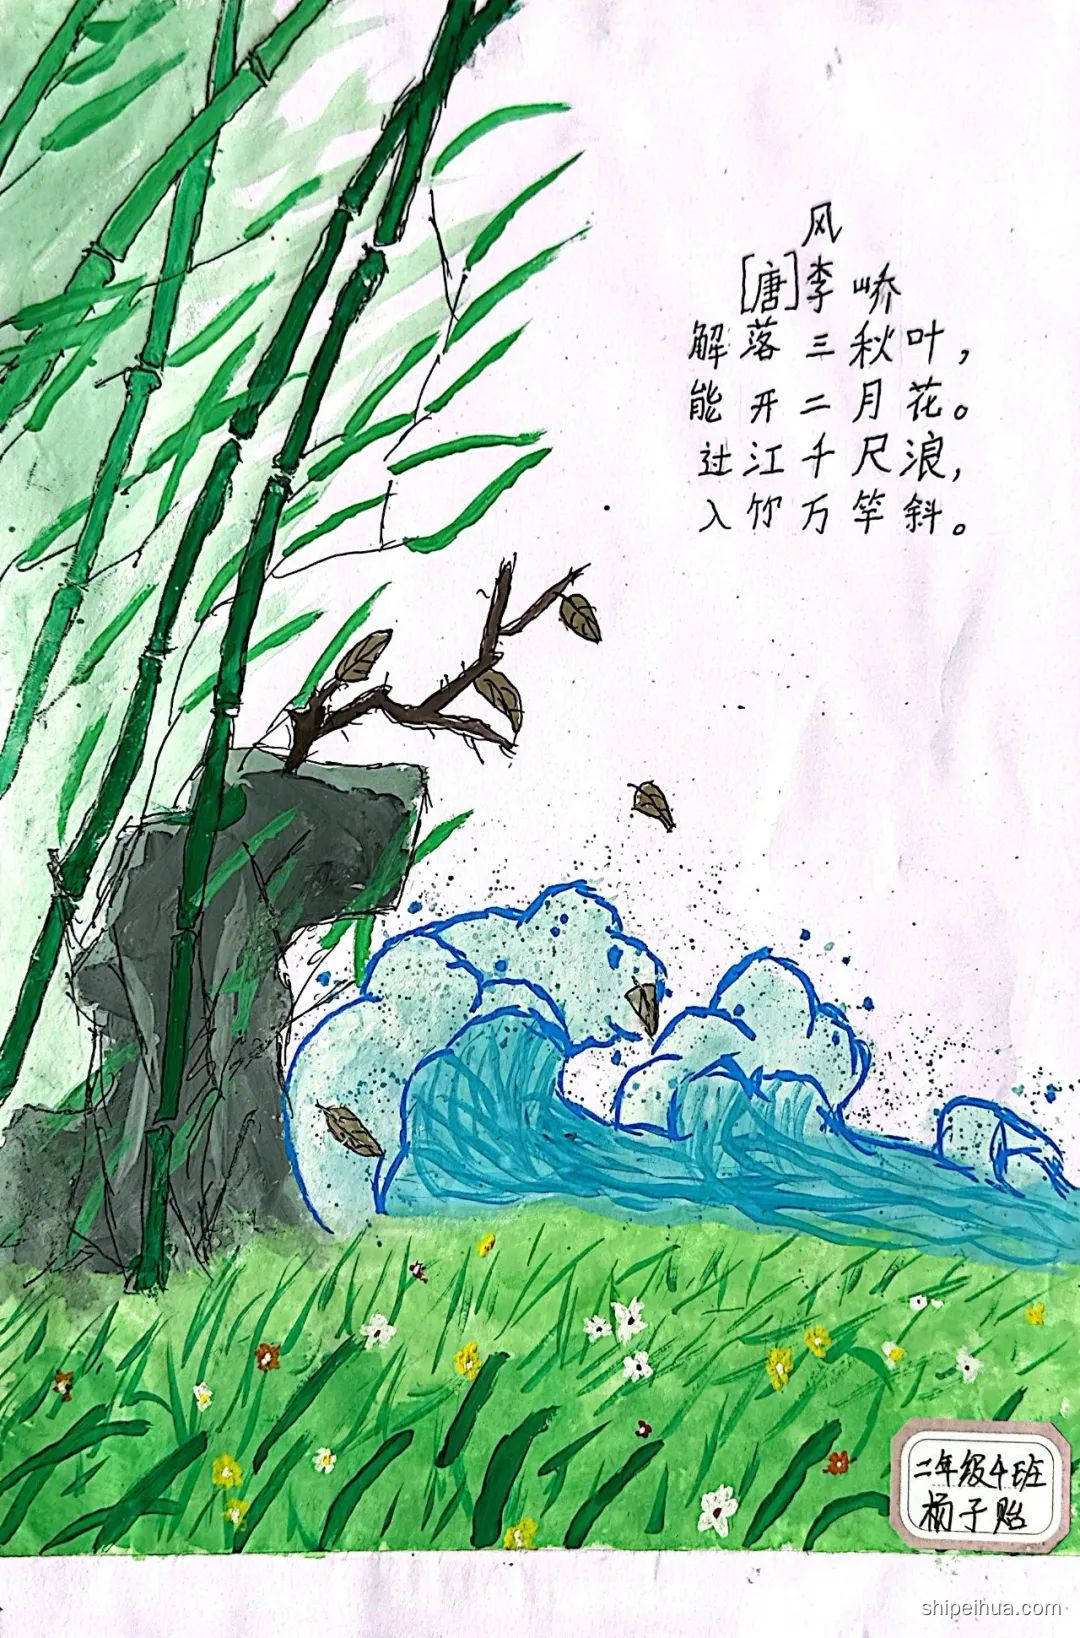 风
[唐]李峤
解落三秋叶，
能开二月花。
过江千尺浪，
入竹万竿斜。
二年级4班
杨子贻
shipeihua.com